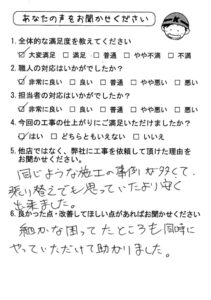 あなたの声をお聞かせください
1.全体的な満足度を教えてください
☑大変満足 □満足 □普通 □やや不満 □不満
2.職人の対応はいかがでしたか？
☑非常に良い □良い □普通 □やや悪い □悪い
3.担当者の対応はいかがでしたか？
☑非常に良い □良い □普通 □やや悪い □悪い
4.今回の工事の仕上がりにご満足いただけましたか？
☑はい □どちらともいえない □いいえ
5.他店ではなく、弊社に工事を依頼して頂けた理由を
お聞かせください。
同じような施工の事例が多くて、
張り替えでも思っていたより安く
出来ました。
6.良かった点・改善してほしい点があればお聞かせください
細かな困ってたところも同時に
やっていただけて助かりました。